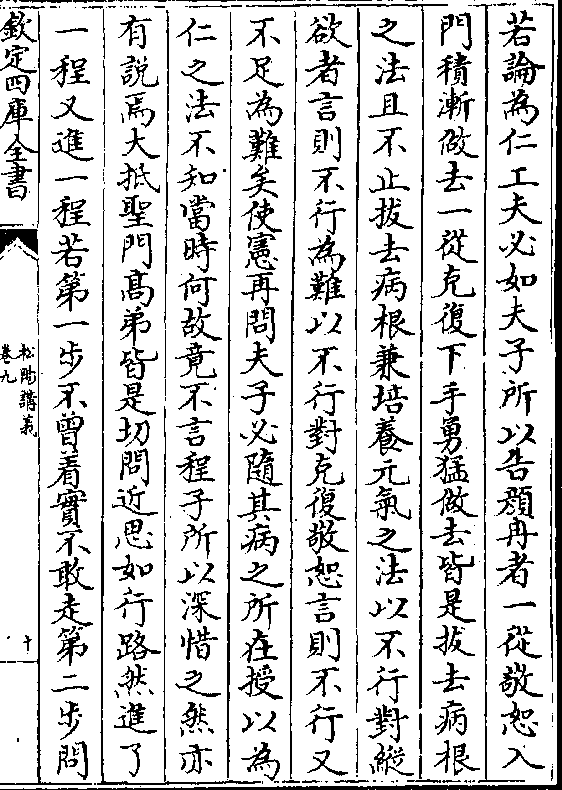 若論為仁工夫必如夫子所以告顔冉者一從敬恕入
門積漸做去一從克復下手勇猛做去皆是拔去病根
之法且不止拔去病根兼培養元氣之法以不行對縱
欲者言則不行為難以不行對克復敬恕言則不行又
不足為難矣使憲再問夫子必隨其病之所在授以為
仁之法不知當時何故竟不言程子所以深惜之然亦
有説焉大抵聖門髙弟皆是切問近思如行路然進了
一程又進一程若第一步不曾着實不敢走第二步問
欽定四庫全書
松陽講義
卷九
十